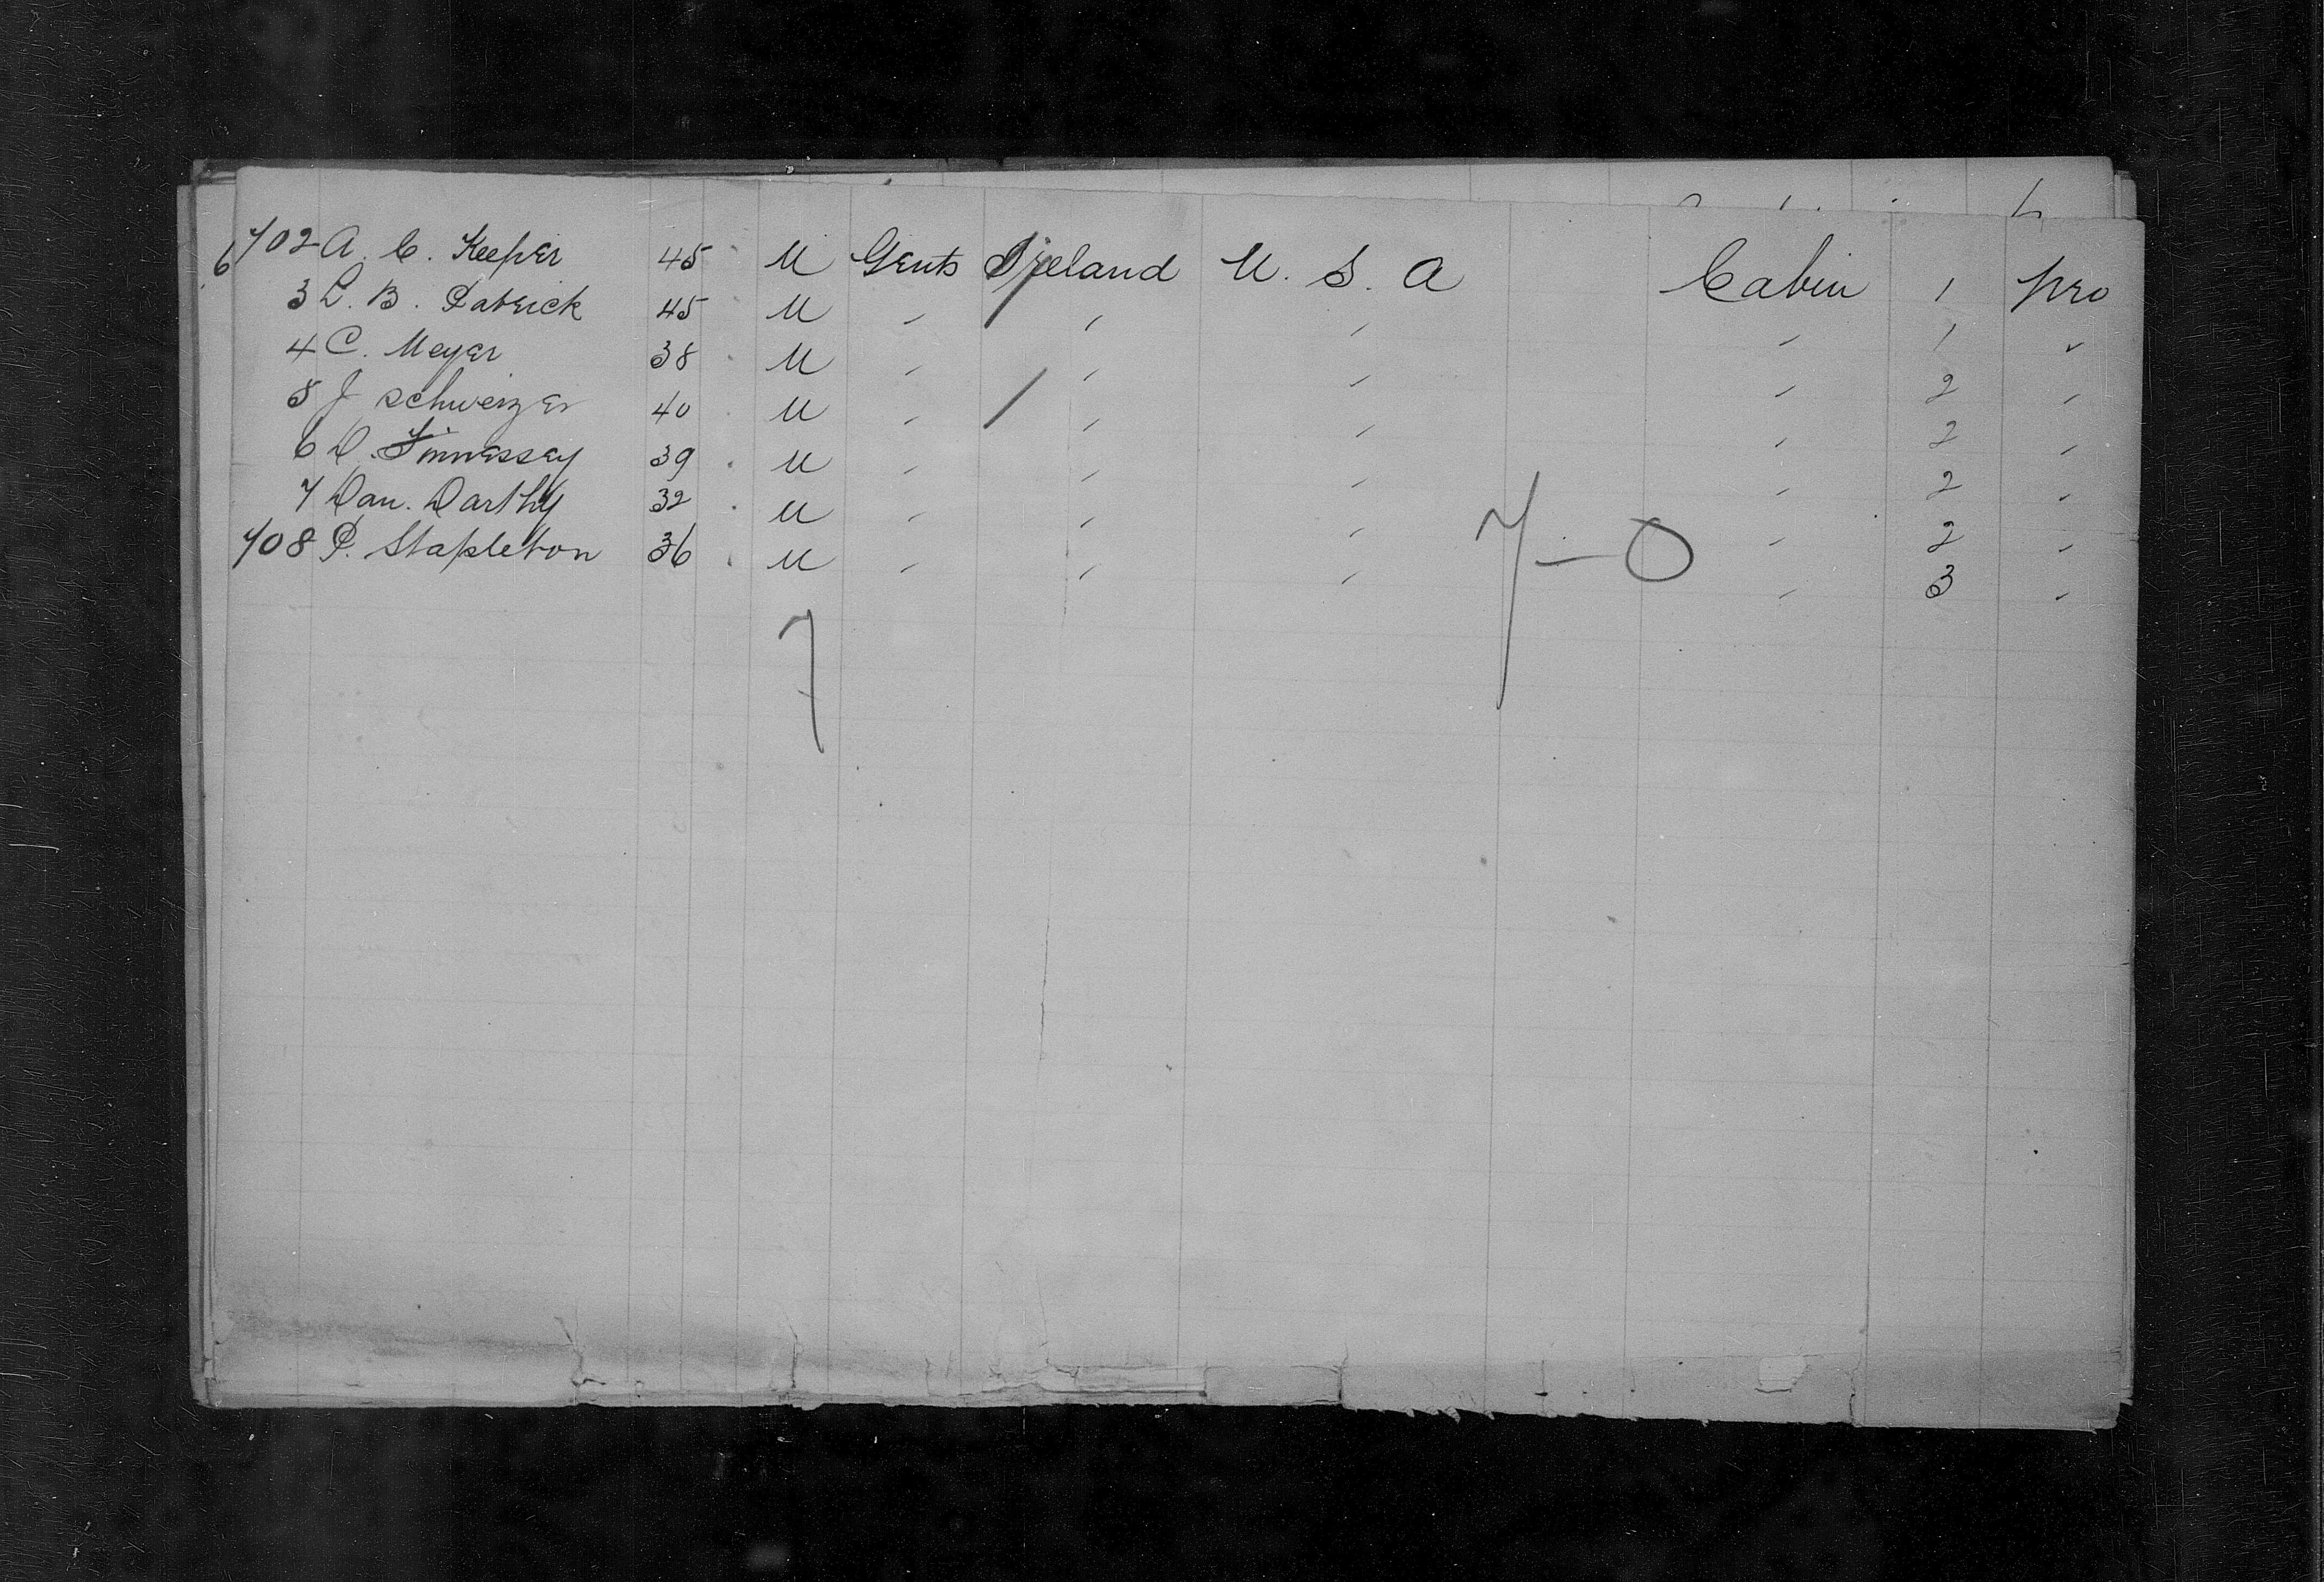 702 A. C. Keeper 45 M Gents Ireland U. S. A Cabin 1 pro
3 L. B. Patrick 45 M " " " " 1 "
4 C. Meyer 38 M " " " " 2 "
5 J Schweizer 40 M " " " " 2 "
6 D. Finnessey 39 M " " " " 2 "
7 Dan. Darthy 32 M " " " " 2 "
708 P. Stapleton 36 M " " " " 3 "
7 — 0
7